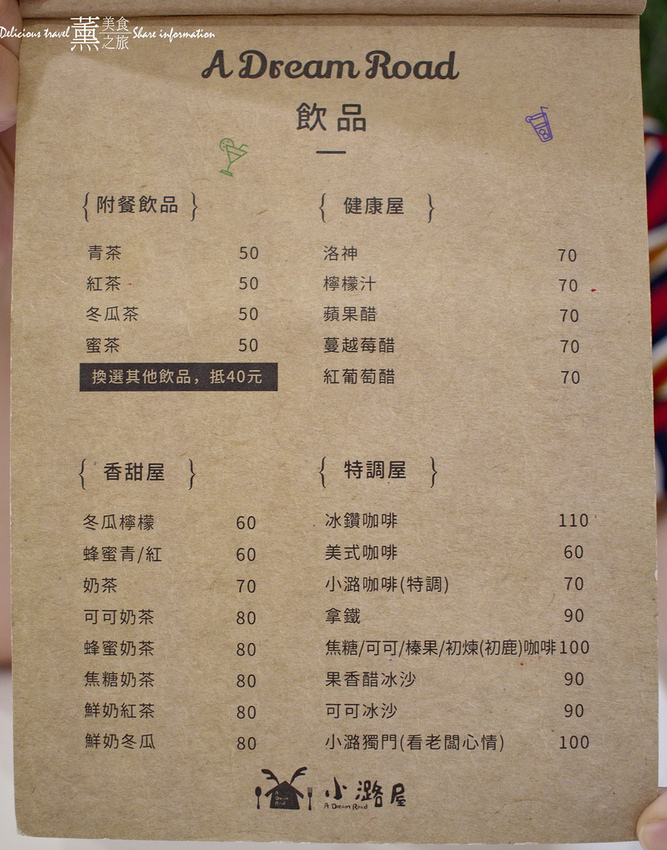 Delicious travel 薰 美食之旅 Share information
A Dream Road
飲品
{附餐飲品}
青茶 50
紅茶 50
冬瓜茶 50
蜜茶 50
換選其他飲品，抵40元
{健康屋}
洛神 70
檸檬汁 70
蘋果醋 70
蔓越莓醋 70
紅葡萄醋 70
{香甜屋}
冬瓜檸檬 60
蜂蜜青/紅 60
奶茶 70
可可奶茶 80
蜂蜜奶茶 80
焦糖奶茶 80
鮮奶紅茶 80
鮮奶冬瓜 80
{特調屋}
冰鑽咖啡 110
美式咖啡 60
小潞咖啡(特調) 70
拿鐵 90
焦糖/可可/榛果/初煉(初鹿)咖啡 100
果香醋冰沙 90
可可冰沙 90
小潞獨門(看老闆心情) 100
小潞屋
A Dream Road